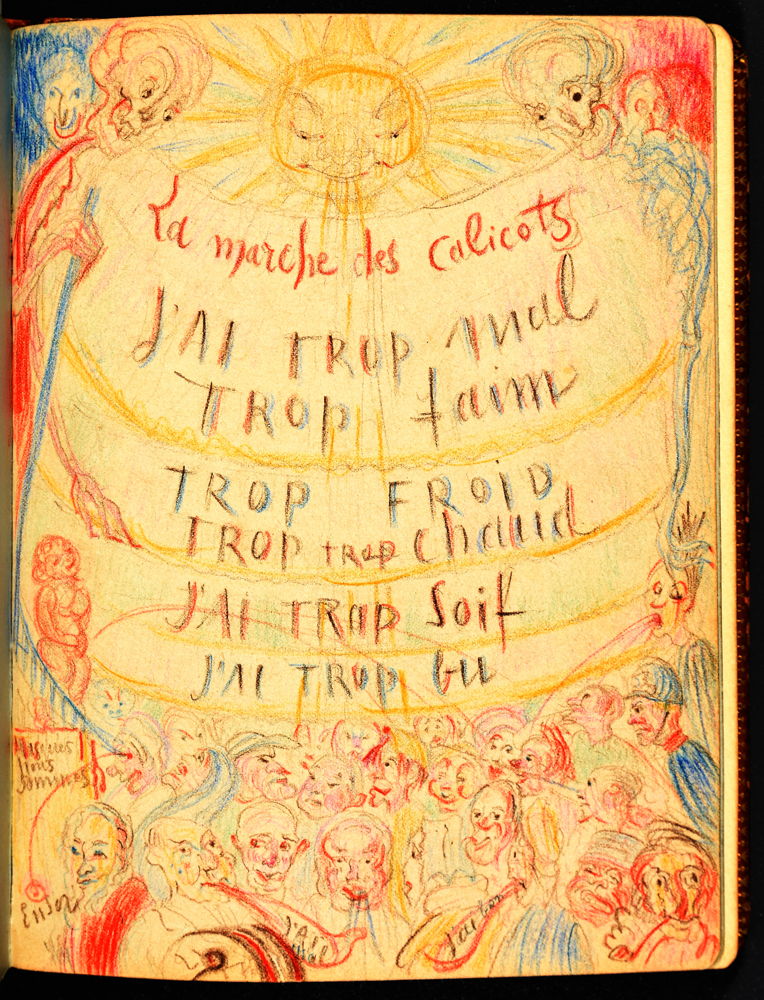 La marche des calicots
J'AI TROP mal
TROP faim
TROP FROID
TROP TROP chaud
J'AI TROP Soif
J'AI TROP bu
nous
sommes
Ensor